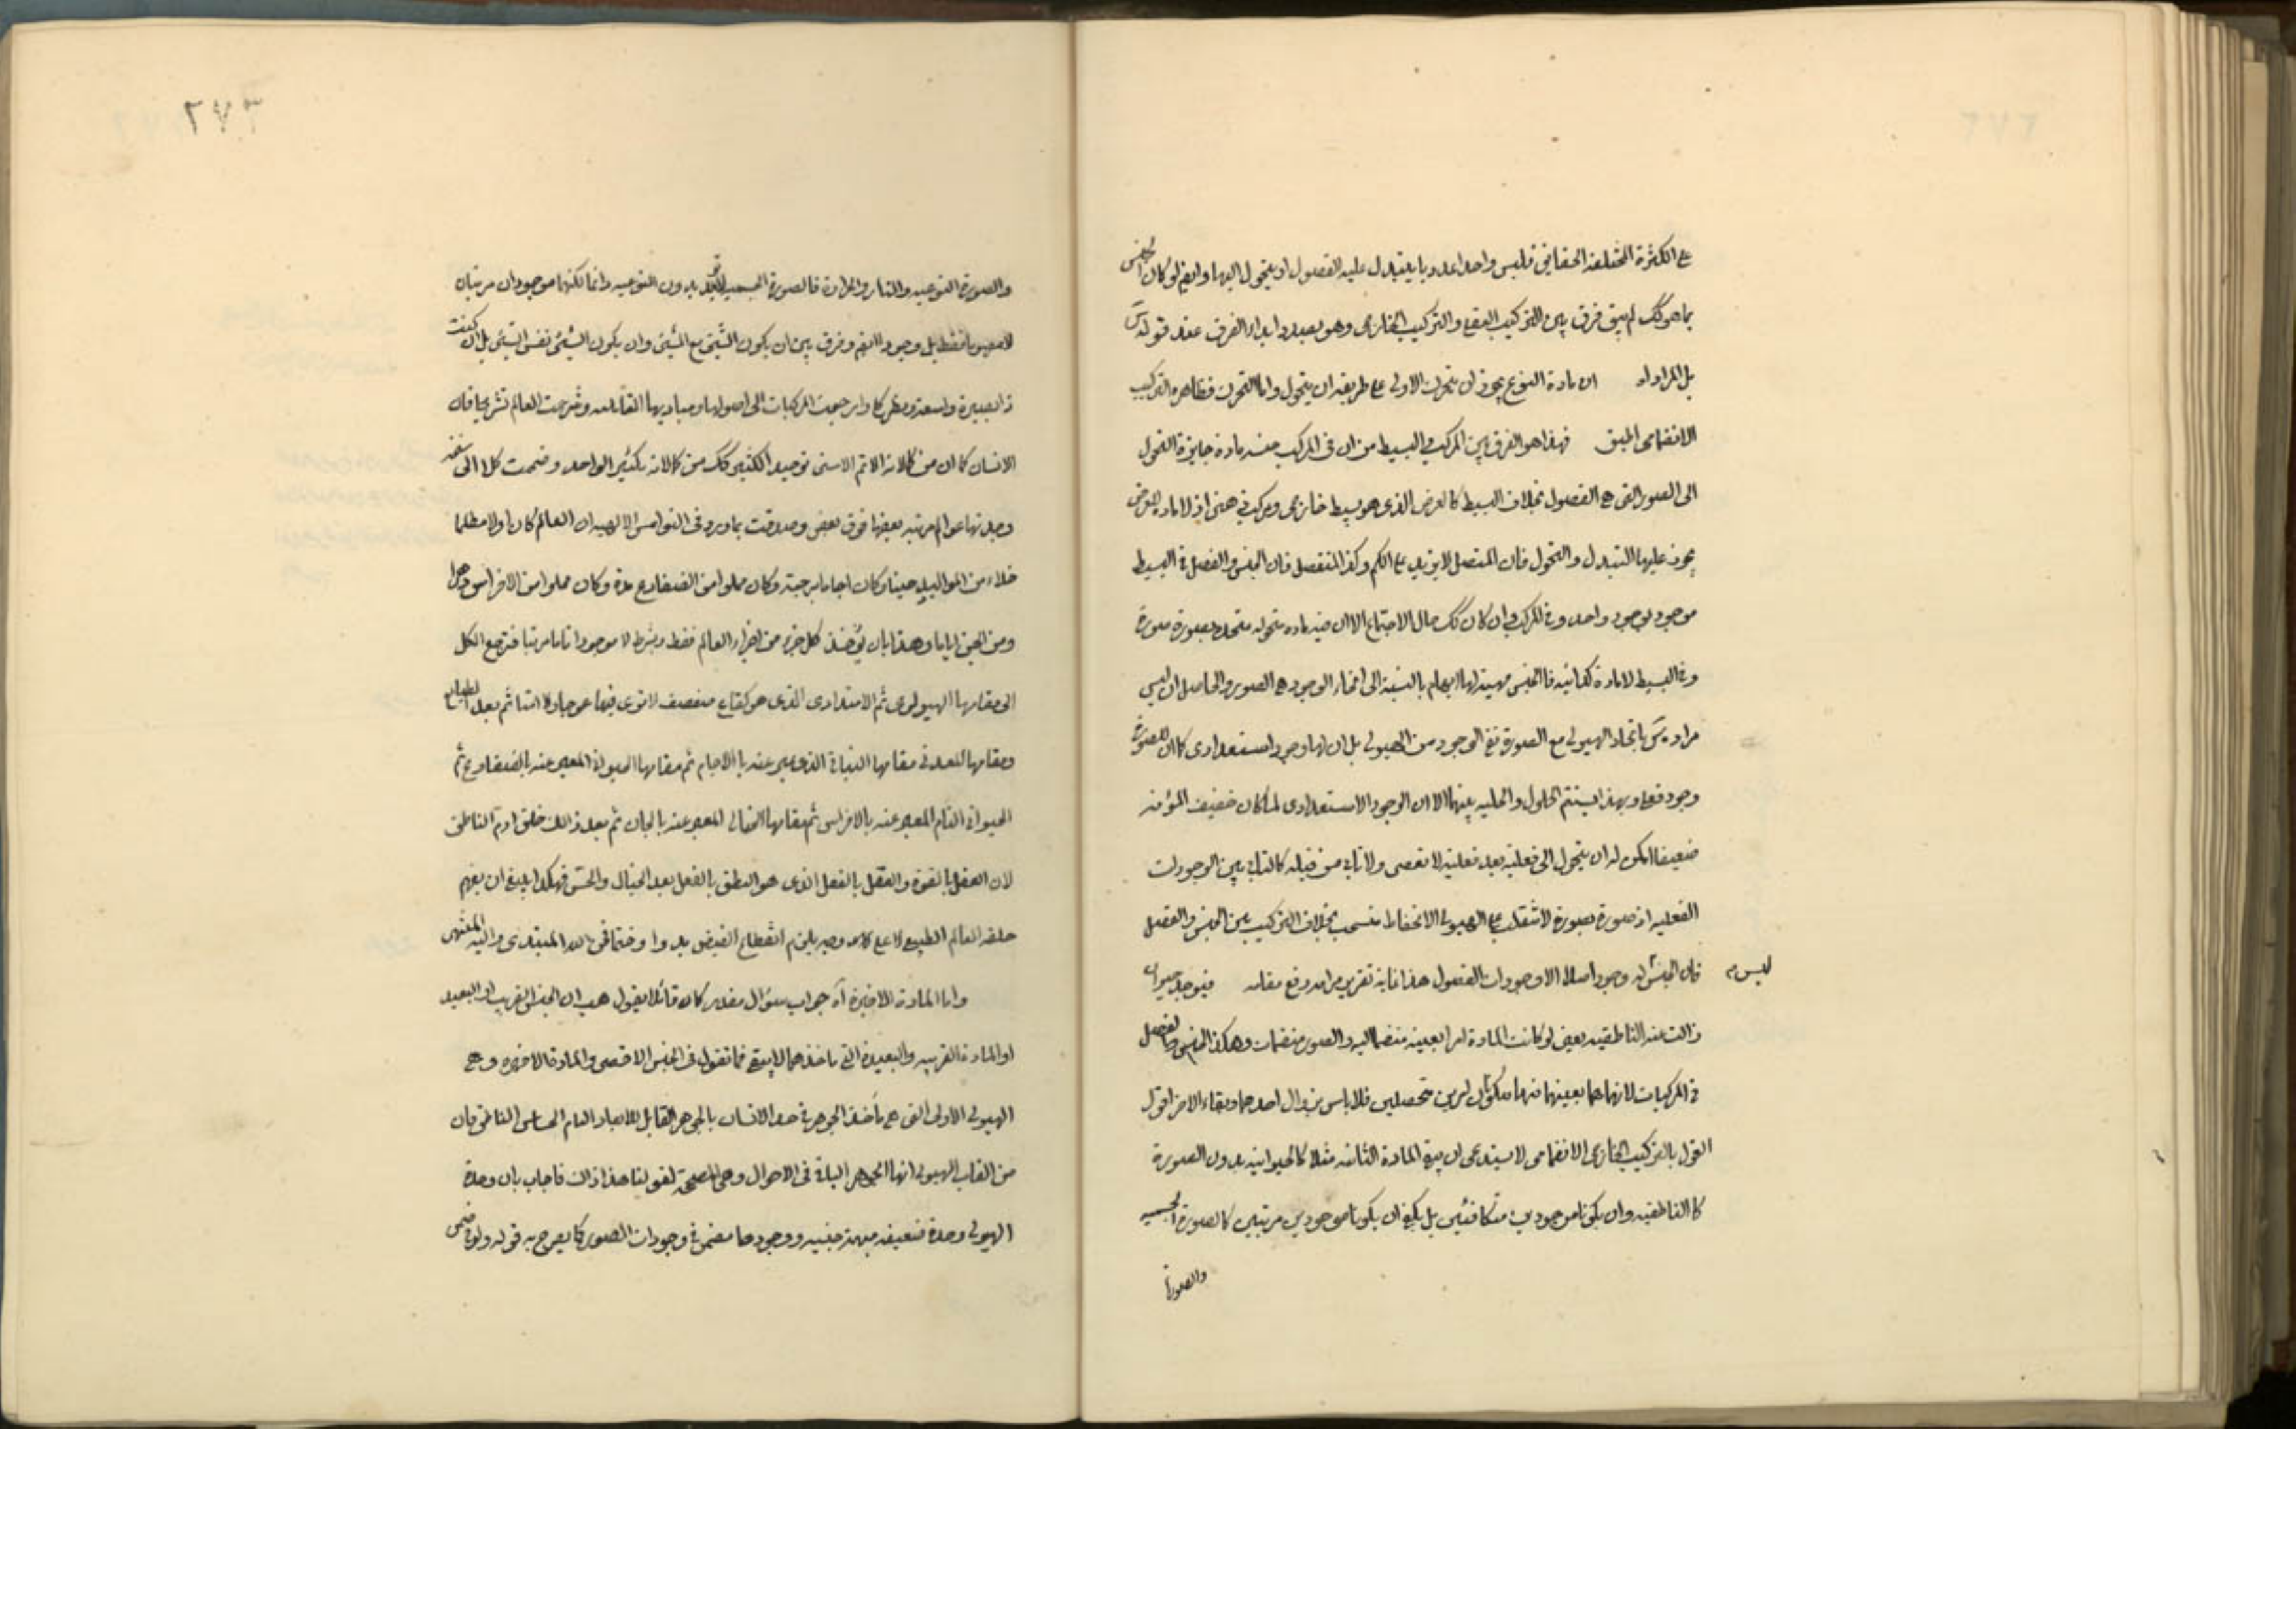 على الكثرة المختلفة الحقايق فليس واحدا عدديا يتبدل عليه الفصول او يتحول اليها وايض لو كان الجنس
بما هو كك لم يبق فرق بين التركيب العقلى والتركيب الخارجى وهو بصدد ابداء الفرق عند قوله
بل المراد ان مادة النوع يجوز ان يتحرك الاولى على طريقه ان يتحول واما التحرك فظاهره التركيب
الانضمامى فهذا هو الفرق بين المركب والبسيط من ان فى المركب جنسه مادة جايزة التحول
الى الصور التى هى الفصول بخلاف البسيط كالعرض الذى هو بسيط خارجى ومركب ذهنى اذ لا مادة للعرض
يجوز عليها التبدل والتحول فان المتصل لا يزيد على الكم وكذا المنفصل فان الجنس والفصل فى البسيط
موجود بوجود واحد وفى المركب وان كان كك حال الاجتماع الا ان فيه مادة متحوله متحدة بصورة صورة
وفى البسيط لا مادة كذائيه فالجنس مهية لها ابهام بالنسبة الى انحاء الوجود هى الصور والحاصل ان ليس
مراد باتحاد الهيولى مع الصورة نفى الوجود من الهيولى بل ان لها وجود استعدادى كما ان للصورة
وجود فعلى وبهذا يستتم الحلول والحليه بينهما الا ان الوجود الاستعدادى لما كان خفيف المؤنه
ضعيفا امكن له ان يتحول الى فعلية بعد فعلية لا تعصى ولا تابى من قبله كالتابى بين الوجودات
الفعليه اذ صورة بصورة لا تنقلب على الهيولى الانحفاظ بخلاف التركيب بين الجنس والفصل
فان الجنس ليس له وجود اصلا الا وجودات الفصول هذا غاية تقرير مرامه ورفع مقامه فيوجد حيوان
زالت عنه الناطقيه يعنى لو كانت المادة امرا بعينه منضما اليه والصور منضمات وهكذا الجنس والفصل
فى المركبات لانهما هما بعينهما امرين متحصلين فلا باس بزوال احدهما وبقاء الاخر اقول
القول بالتركيب الخارجى الانضمامى لا يستدعى ان يبقى المادة الثانيه مثلا كالحيوانيه بدون الصورة
كالناطقيه وان يكونا موجودين متكافئين بل يكفى ان يكونا موجودين مرتبين كالصورة الجسميه
والصورة
٢٧٣
والصورة النوعيه والنار والحرارة فالصورة الجسميه بدون النوعيه دائما لكنهما موجودان مرتبان
لا مفهوما فقط بل وجودا ايضا وفرق بين ان يكون الشيئ مع الشيئ وان يكون الشيئ نفس الشيئ بل ان كنت
ذا بصيرة واسعة ونظر وارجعت المركبات الى اصولها ومباديها القابليه وشرحت العالم تشريحا فان
الانسان كما ان من كمالاته الاتم الاسنى توحيد الكثير كك من كمالاته تكثير الواحد وضممت كلا الى سنخه
وجدتها عوالم مرتبه بعضها فوق بعض وصدقت بما ورد فى النواميس الالهيه ان العالم كان اولا مظلما
خلاء من المواليد حينا وكان برهة وكان مملوا من الضفادع مدة وكان مملوا من الافراس دهرا
ومن الجن اياما وهذا بان يؤخذ كل جزء من اجزاء العالم فقط وبشرط لا موجودا تاما مرتبا فترجع الكل
الى مقامها الهيولى ثم الامتدادى الذى هو كقاع صفصف لا ترى فيها عوجا ولا امتا ثم بعد الطبايع
ومقامها المعدنى مقامها النباتى الذى عبر عنه بالاجام ثم مقامها الحيوانى المعبر عنه بالضفادع ثم
الحيوانى التام المعبر عنه بالافراس ثم مقامها الخيالى المعبر عنه بالجان ثم بعد ذالك خلق ادم الناطق
لان العقل بالقوة والعقل بالفعل الذى هو النطق بالفعل بعد الخيال والحس فهكذا ينبغى ان يفهم
خلقة العالم الطبيعى لا على وجه يلزم انقطاع الفيض بدوا وختما فمن الله المبتدى واليه المنتهى
واما المادة الاخيرة آه جواب سؤال مقدر كان قائلا يقول هب ان الجنس القريب او البعيد
او المادة القريبه والبعيدة التى ماخذهما لا يبقى فما تقول فى الجنس الاقصى والمادة الاخيره وهى
الهيولى الاولى التى هى مأخذ الجوهر فى حد الانسان بالجوهر القابل للابعاد النامى الحساس الناطق فان
من القاب الهيولى انها الجوهر الباقى فى الاحوال وهى المصححة لقولنا هذا ذاك فاجاب بان وحدة
الهيولى وحدة ضعيفه مبهمة جنسيه ووجودها مضمن فى وجودات الصور كما يصرح به قوله ولو فى ضمن